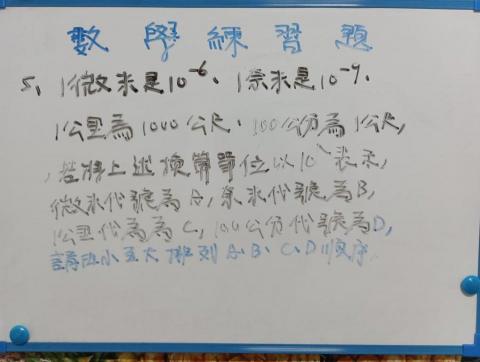 數學練習題
5、1微米是10⁻⁶、1奈米是10⁻⁹、
1公里為1000公尺、100公分為1公尺,
,若將上述換算單位以10ˋ表示,
微米代號為A,奈米代號為B,
1公里代為為C,100公分代號為D,
請由小至大排列A、B、C、D順序.